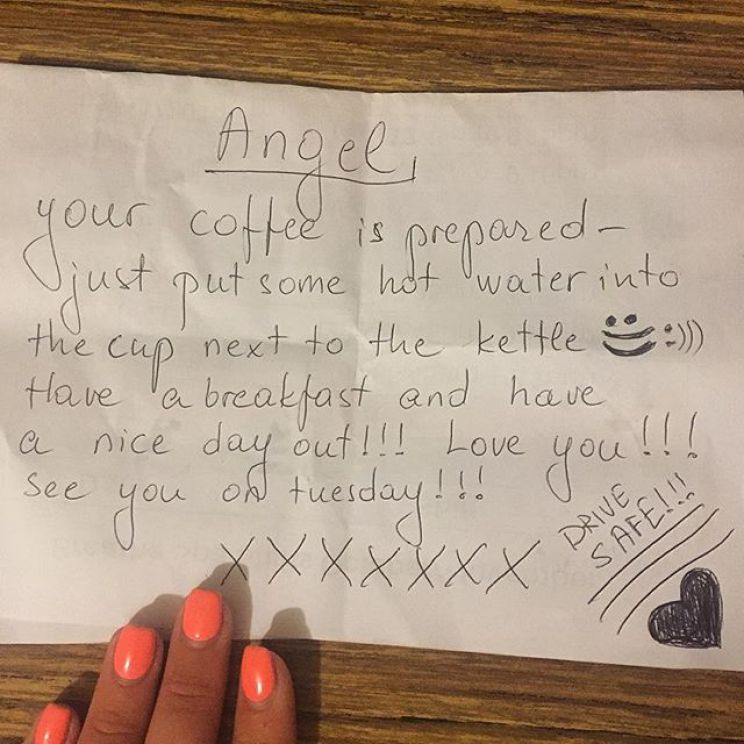 Angel,
your coffee is prepared -
just put some hot water into
the cup next to the kettle :)))
Have a breakfast and have
a nice day out!!! Love you!!!
See you on tuesday!!!
XXXXXXX
DRIVE
SAFE!!!